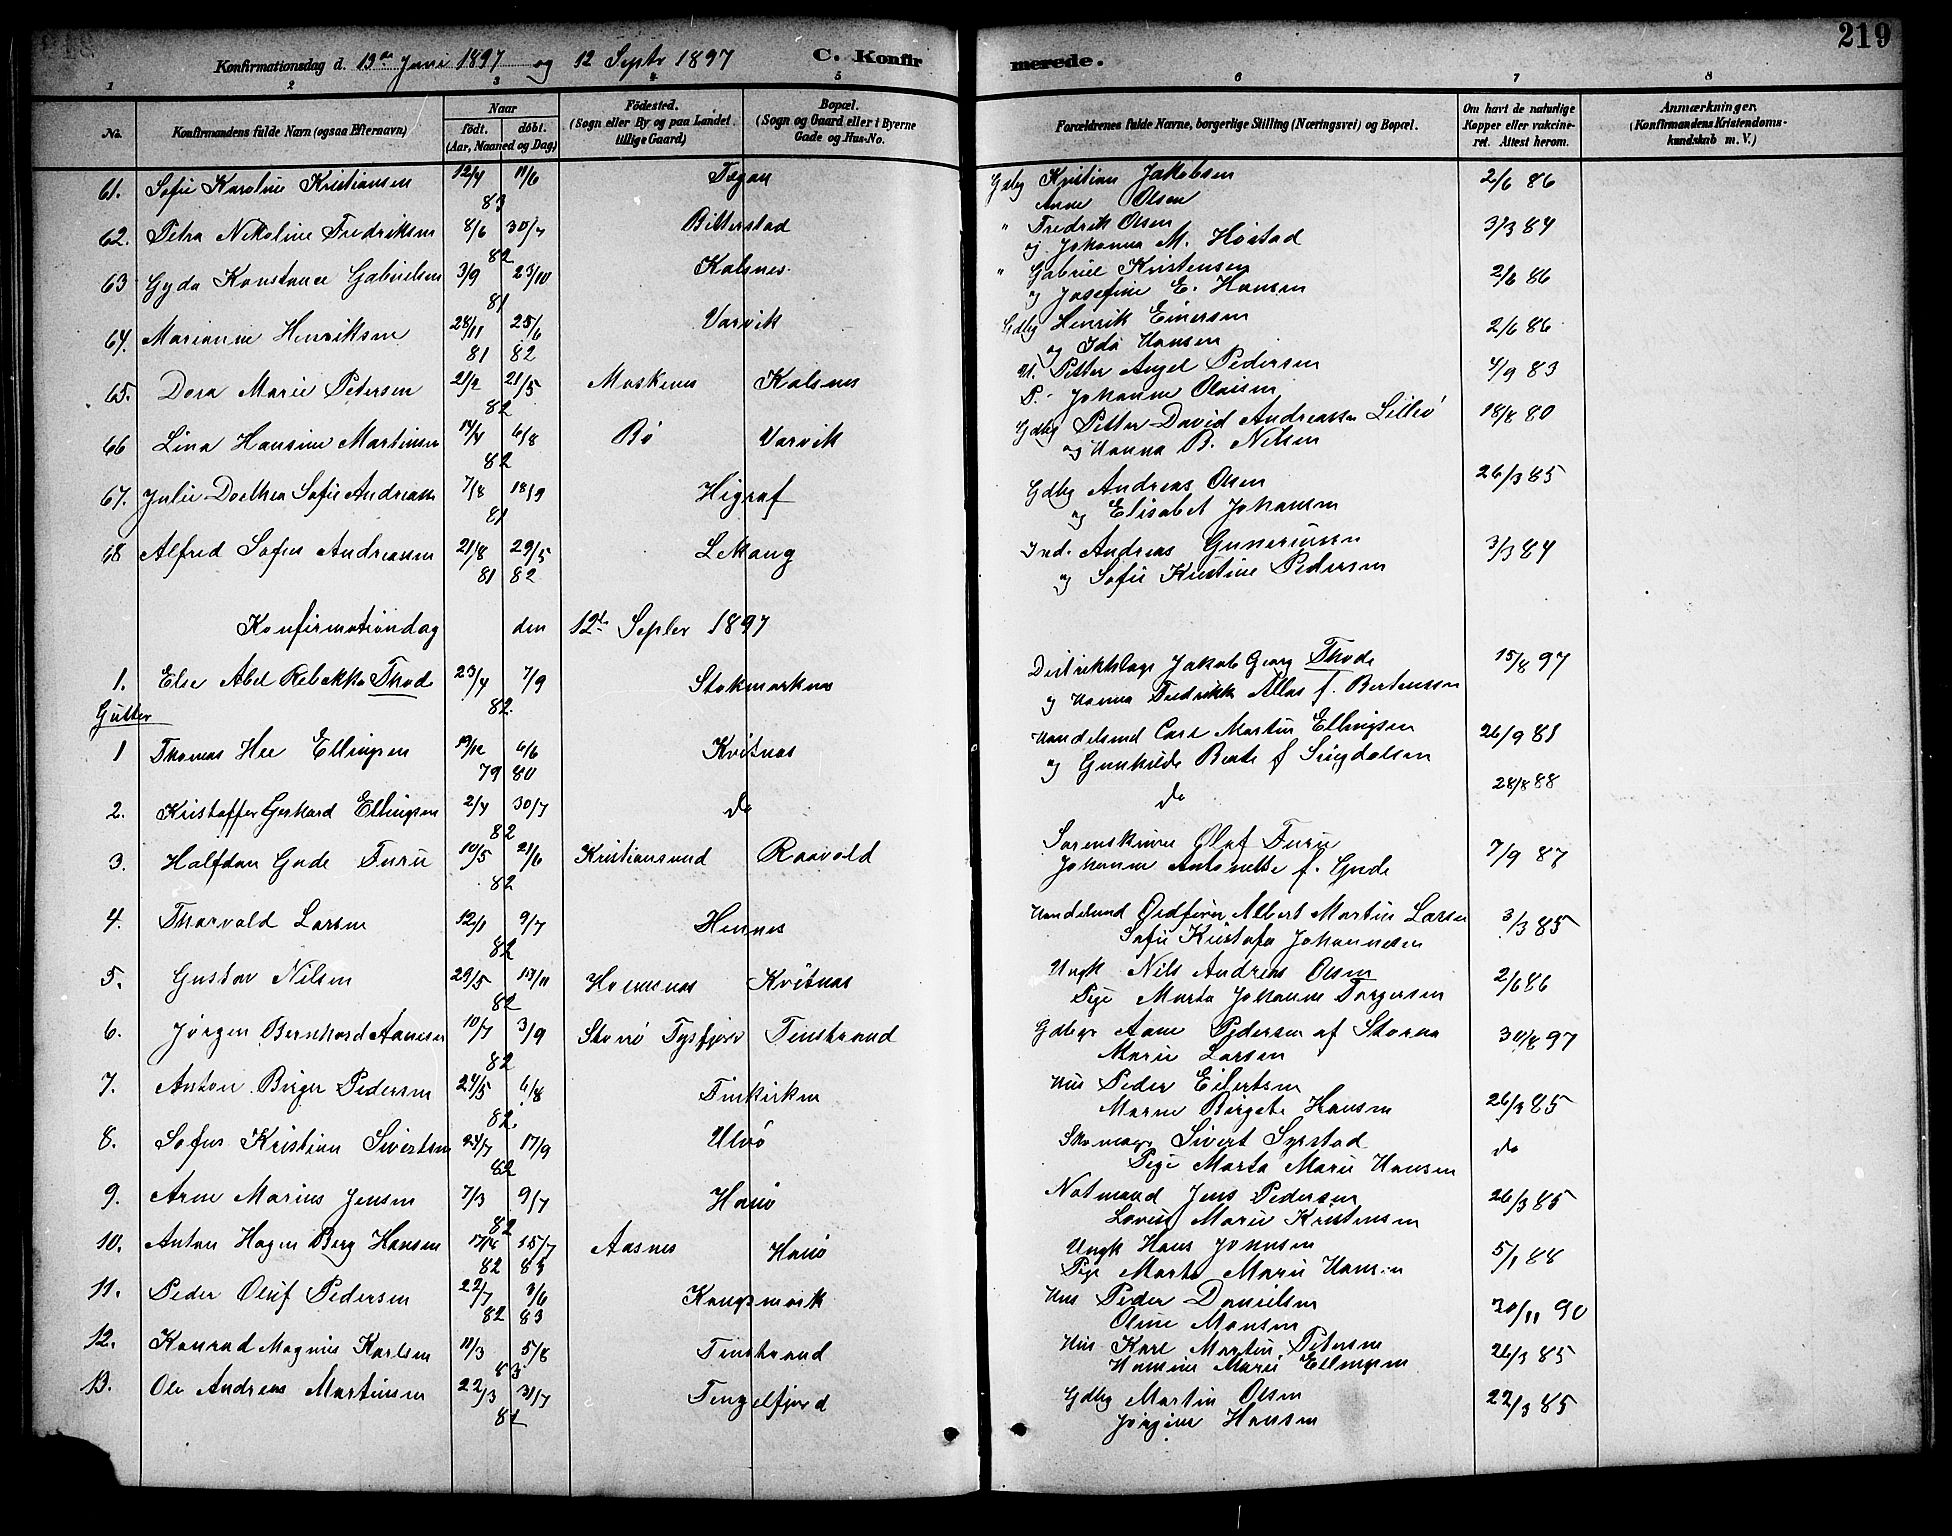 219
Konfirmationsdag d. 13de Juni 1897 og 12 Septr 1897 C. Konfirmerede.
1 2 3 4 5 6 7 8
No. Konfirmandens fulde Navn (ogsaa Efternavn) Naar födt. döbt. (Aar, Maaned og Dag) Födested. (Sogn eller By og paa Landet tillige Gaard) Bopæl. (Sogn og Gaard eller i Byerne Gade og Hus-No. Forældrenes fulde Navne, borgerlige Stilling (Næringsvei) og Bopæl. Om havt de naturlige Kopper eller vakcineret. Attest herom. Anmærkninger. (Konfirmandens Kristendomskundskab m. V.)
61. Sofie Karoline Kristiansen 12/4 11/6 Gdbg Kristian Jakobsen 2/6 86
83 Anne Olsen
62. Petra Nikoline Fredriksen 8/6 30/7 Bitterstad " Fredrik Olsen 3/3 84
82 og Johanna M. Høstad
63 Gyda Konstance Gabrielsen 3/9 23/10 Kalsnes " Gabriel Kristensen 2/6 86
81 og Josefine E. Hansen
64. Marianne Henriksen 28/11 25/6 Varvik Gdbg Henrik Einersen 2/6 86
81 82 og Ida Hansen
65. Dora Marie Pedersen 21/2 21/5 Moskenes Kalsnes U. Petter Angel Pedersen 4/9 83
82 P. Johanne Olaisen
66 Lina Hansine Martinsen 14/4 6/8 Bø Varvik Gdbg Petter David Andreassen Lillø 18/8 80
82 og Hanna B. Nilsen
67. Julie Dorthea Sofie Andreasse 7/8 18/9 Higraf Gdbg Andreas Olsen 26/3 85
81 og Elisabet Johansen
68 Alfred Sofus Andreassen 21/8 29/5 Lekang Ind. Andreas Guneriussen 3/3 84
81 82 og Sofie Kristine Pedersen
Konfirmationdag den 12te Septer 1897
1. Else Abel Rebekka Thode 23/4 7/9 Stokmarknes Distriktslæge Jakob Georg Thode 15/8 97
82. og Hanna Fredrikke Allas f. Berntsen
Gutter
1 Thomas Hee Ellingsen 19/12 6/6 Kvitnes Handelsmd Carl Martin Ellingsen 26/9 81
79 80 og Gunhilde Berte f Sigdalsen
2. Kristoffer Gerhard Ellingsen 2/4 30/7 do do 28/8 88
82
3. Halfdan Gude Furu 10/5 21/6 Kristiansund Raavold Sorenskriver Olaf Furu 7/9 87
82 Johanne Antonette f. Gude
4. Thorvald Larsen 12/1 9/7 Hennes Handelsmd Albert Martin Larsen 3/3 85
82 Sofie Kristofa Johannesen
5. Gustav Nilsen 29/5 19/11 Kvitnes Ungk Nils Andreas Olsen 2/6 86
82 Pige Marta Johanne Torgersen
6. Jørgen Bernhard Aanesen 10/7 3/9 Storø Tysfjord Finstrand Gdbgr Aane Pedersen af Storøa 30/8 97
82 Marie Larsen
7. Anton Birger Pedersen 24/5 6/8 Finkirken Hus Peder Eilertsen 26/3 85
82. Maren Birgete Hansen
8. Sofus Kristian Sivertsen 24/7 17/9 Ulvø Sivert Syrstad do
82 Pige Marta Marie Hansen
9. Arne Marius Jensen 7/3 9/7 Hanø Notmand Jens Pedersen 26/3 85
82 Lovise Marie Kristensen
10. Anton Hagen Berg Hansen 17/12 15/7 Aasnes Hanø Ungk Hans Johnsen 5/1 88
82 83 Pige Marta Marie Hansen
11. Peder Oluf Pedersen 22/7 3/6 Kongsmark Hus Peder Danielsen 30/11 90
82 83 Oline Monsen
12. Konrad Magnus Karlsen 11/3 5/8 Finstrand Hus Karl Martin Petersen 26/3 85
83 Hansine Marie Ellingsen
13. Ole Andreas Martinsen 22/3 31/7 Fingelfjord Gdbg Martin Olsen 22/3 85
81 Jørgine Hansen